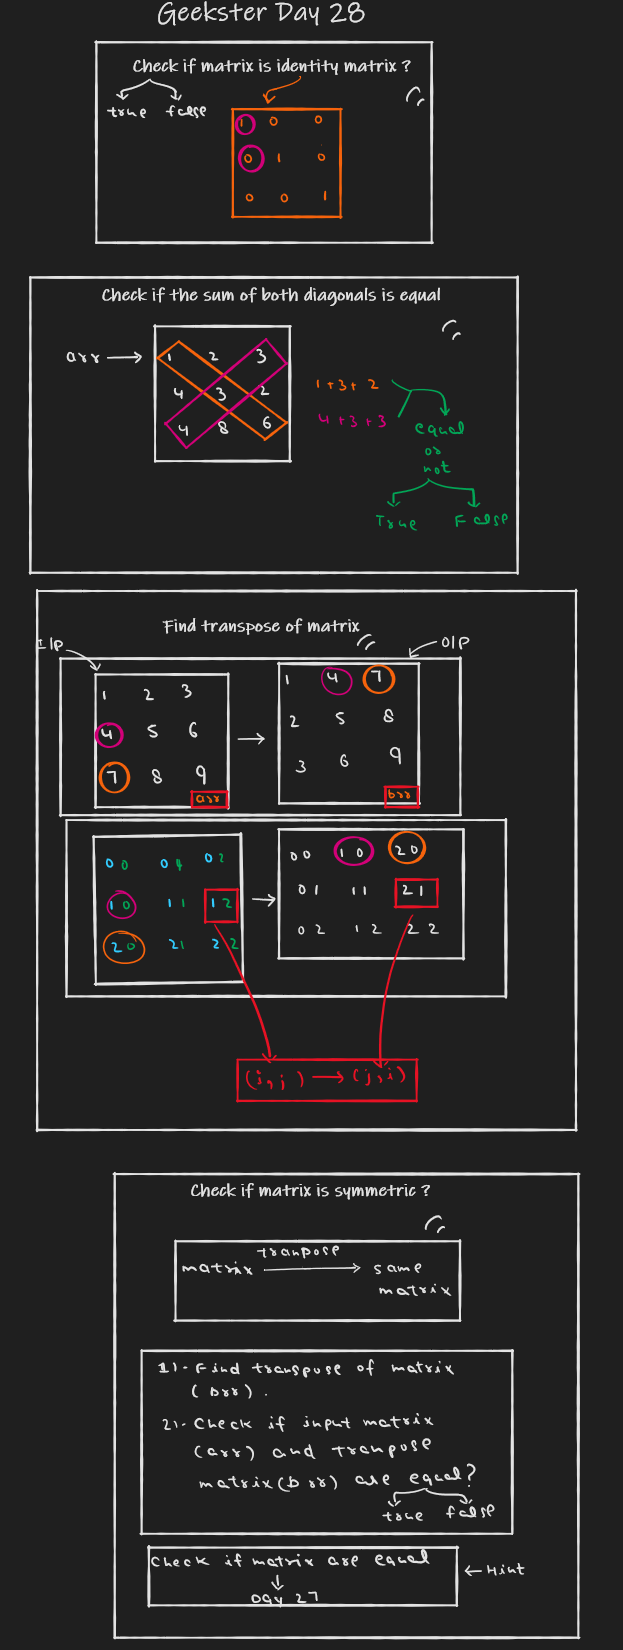 Geekster Day 28
Check if matrix is identity matrix ?
true false
1 0 0
0 1 0
0 0 1
Check if the sum of both diagonals is equal
arr
1 2 3
4 3 2
4 8 6
1+3+2
4+3+3
equal
or
not
True False
Find transpose of matrix
I/P
O/P
1 2 3
4 5 6
7 8 9
arr
1 4 7
2 5 8
3 6 9
brr
00 01 02
10 11 12
20 21 22
00 10 20
01 11 21
02 12 22
(i,j) → (j,i)
Check if matrix is symmetric ?
tranpose
matrix → same
matrix
1)- Find transpose of matrix
(brr).
2)- Check if input matrix
(arr) and tranpose
matrix(brr) are equal?
true false
Check if matrix are equal
← Hint
Day 27